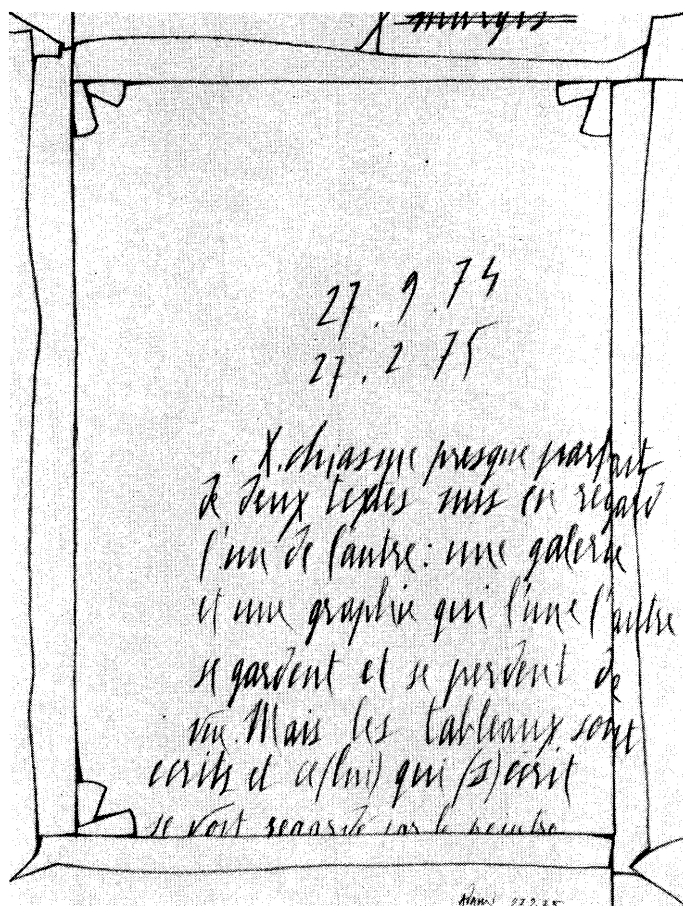 margis
27.9.74
27.2.75
. X. chiasme presque parfait
de deux textes mis en regard
l'un de l'autre: une galerie
et une graphie qui l'une l'autre
se gardent et se perdent de
vue. Mais les tableaux sont
écrits et ce(lui) qui (s)écrit
se voit regardé par le peintre
Adami 27.2.75